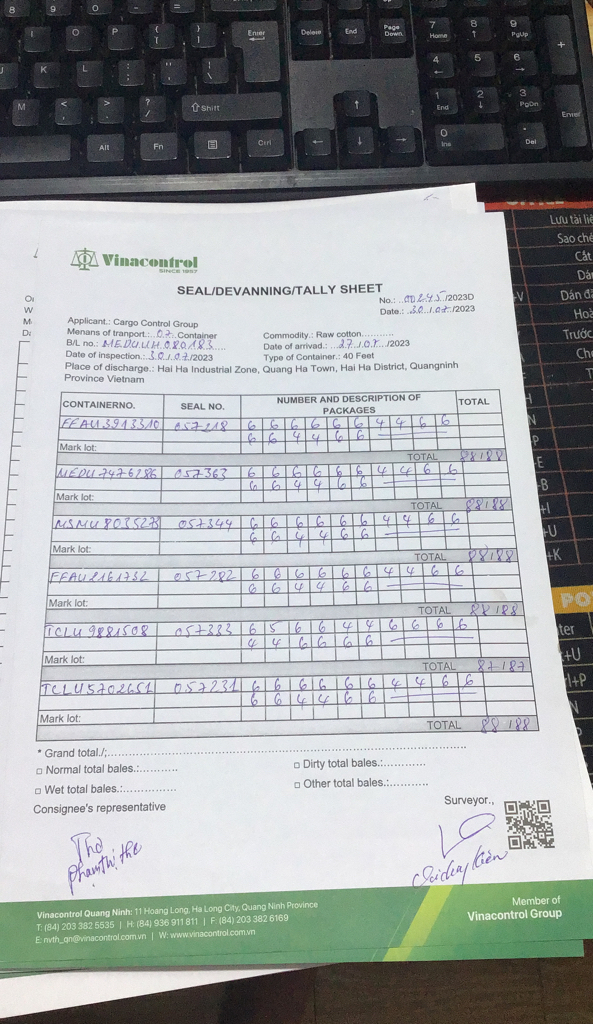 Enter
Delete
End
Page Down
7 Home
8
9 PgUp
4
5
6
1 End
2
3 PgDn
0 Ins
Del
Enter
Shift
Alt
Fn
Ctrl
Vinacontrol
SINCE 1957
SEAL/DEVANNING/TALLY SHEET
No.: 00245/2023D
Date.: 30/07/2023
Applicant.: Cargo Control Group
Menans of tranport.: 07 Container
Commodity.: Raw cotton
B/L no.: MEDUUH080183
Date of arrivad.: 27/07/2023
Date of inspection.: 30/07/2023
Type of Container.: 40 Feet
Place of discharge.: Hai Ha Industrial Zone, Quang Ha Town, Hai Ha District, Quangninh
Province Vietnam
CONTAINERNO. SEAL NO. NUMBER AND DESCRIPTION OF PACKAGES TOTAL
FFAU3913310 057218 6 6 6 6 6 6 4 4 6 6
6 6 4 4 6 6
Mark lot:
TOTAL 88/88
MEDU7476286 057363 6 6 6 6 6 6 4 4 6 6
6 6 4 4 6 6
Mark lot:
TOTAL 88/88
MSMU8035273 057344 6 6 6 6 6 6 4 4 6 6
6 6 4 4 6 6
Mark lot:
TOTAL 88/88
FFAU2161732 057282 6 6 6 6 6 6 4 4 6 6
6 6 4 4 6 6
Mark lot:
TOTAL 88/88
TCLU9881508 057333 6 5 6 6 4 4 6 6 6 6
4 4 6 6 6 6
Mark lot:
TOTAL 87/87
TCLU5702651 057231 6 6 6 6 6 6 4 4 6 6
6 6 4 4 6 6
Mark lot:
TOTAL 88/88
* Grand total./:
Normal total bales.:
Dirty total bales.:
Wet total bales.:
Other total bales.:
Consignee's representative
Surveyor.,
Thơ
Phạm Thị Thơ
Vinacontrol Quang Ninh: 11 Hoang Long, Ha Long City, Quang Ninh Province
T: (84) 203 382 5535 | H: (84) 936 911 811 | F: (84) 203 382 6169
E: nvth_qn@vinacontrol.com.vn | W: www.vinacontrol.com.vn
Member of
Vinacontrol Group
Lưu tài liệ
Sao ché
Cắt
Dán đă
Trước